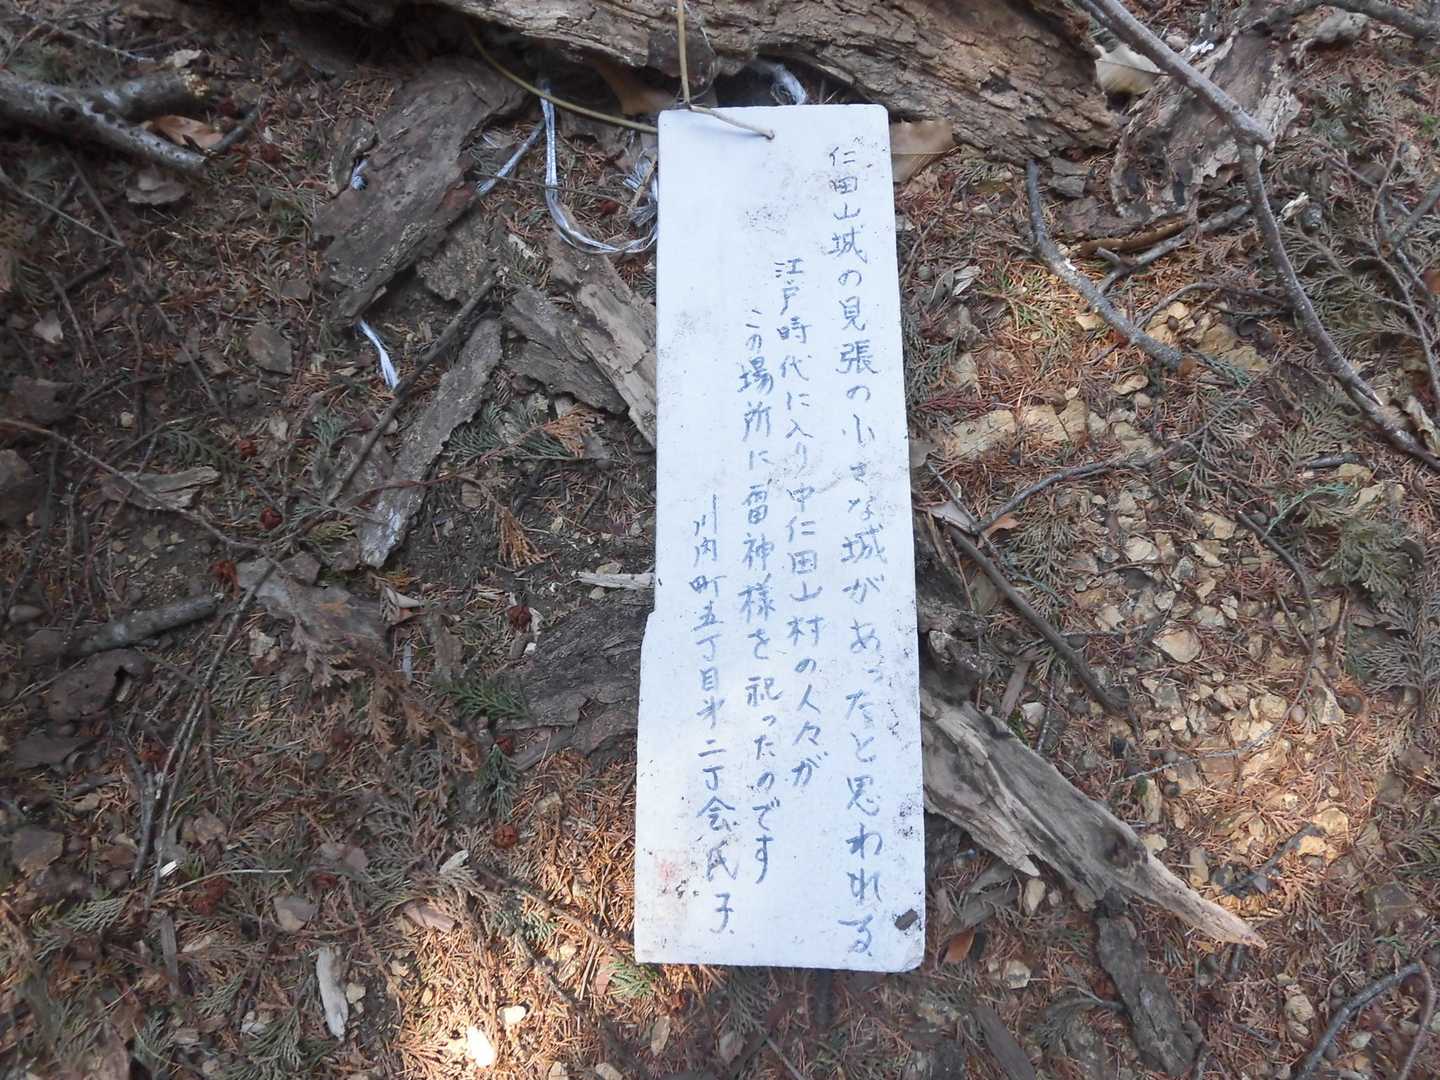 仁田山城の見張の小さな城があったと思われる
江戸時代に入り中仁田山村の人々が
この場所に雷神様を祀ったのです
川内町五丁目第二丁会氏子